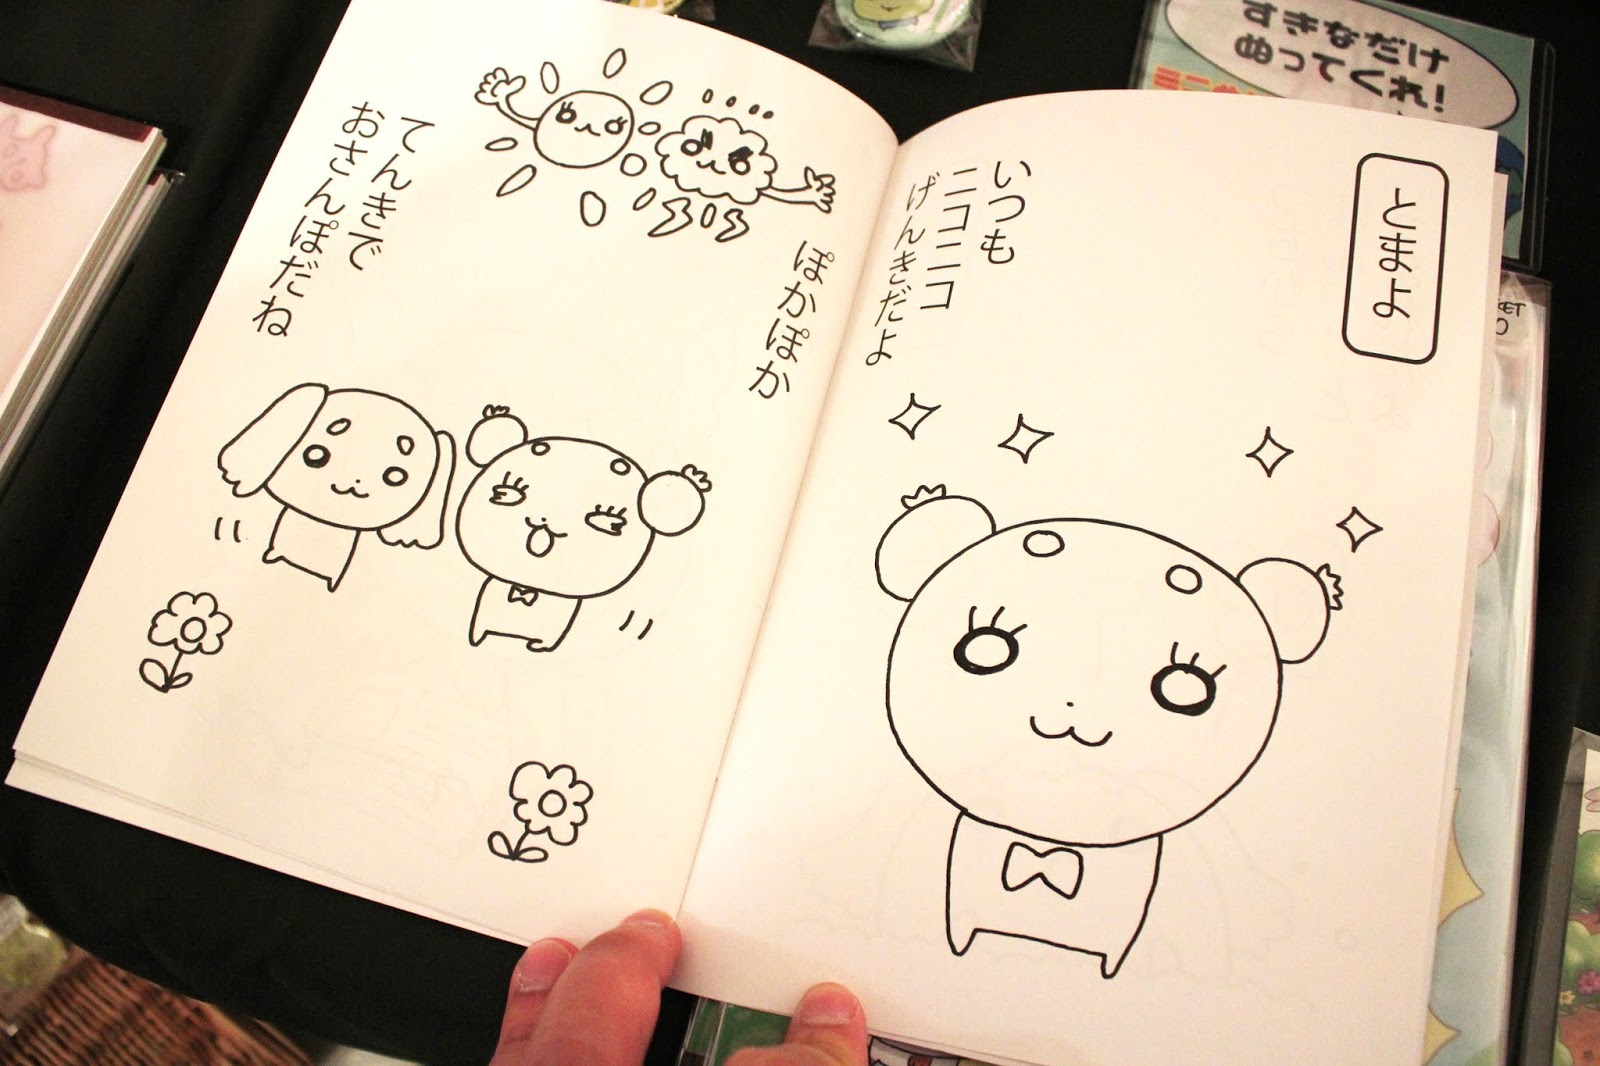 とまよ
いつも
ニコニコ
げんきだよ
ぽかぽか
てんきで
おさんぽだね
すきなだけ
ぬってくれ!